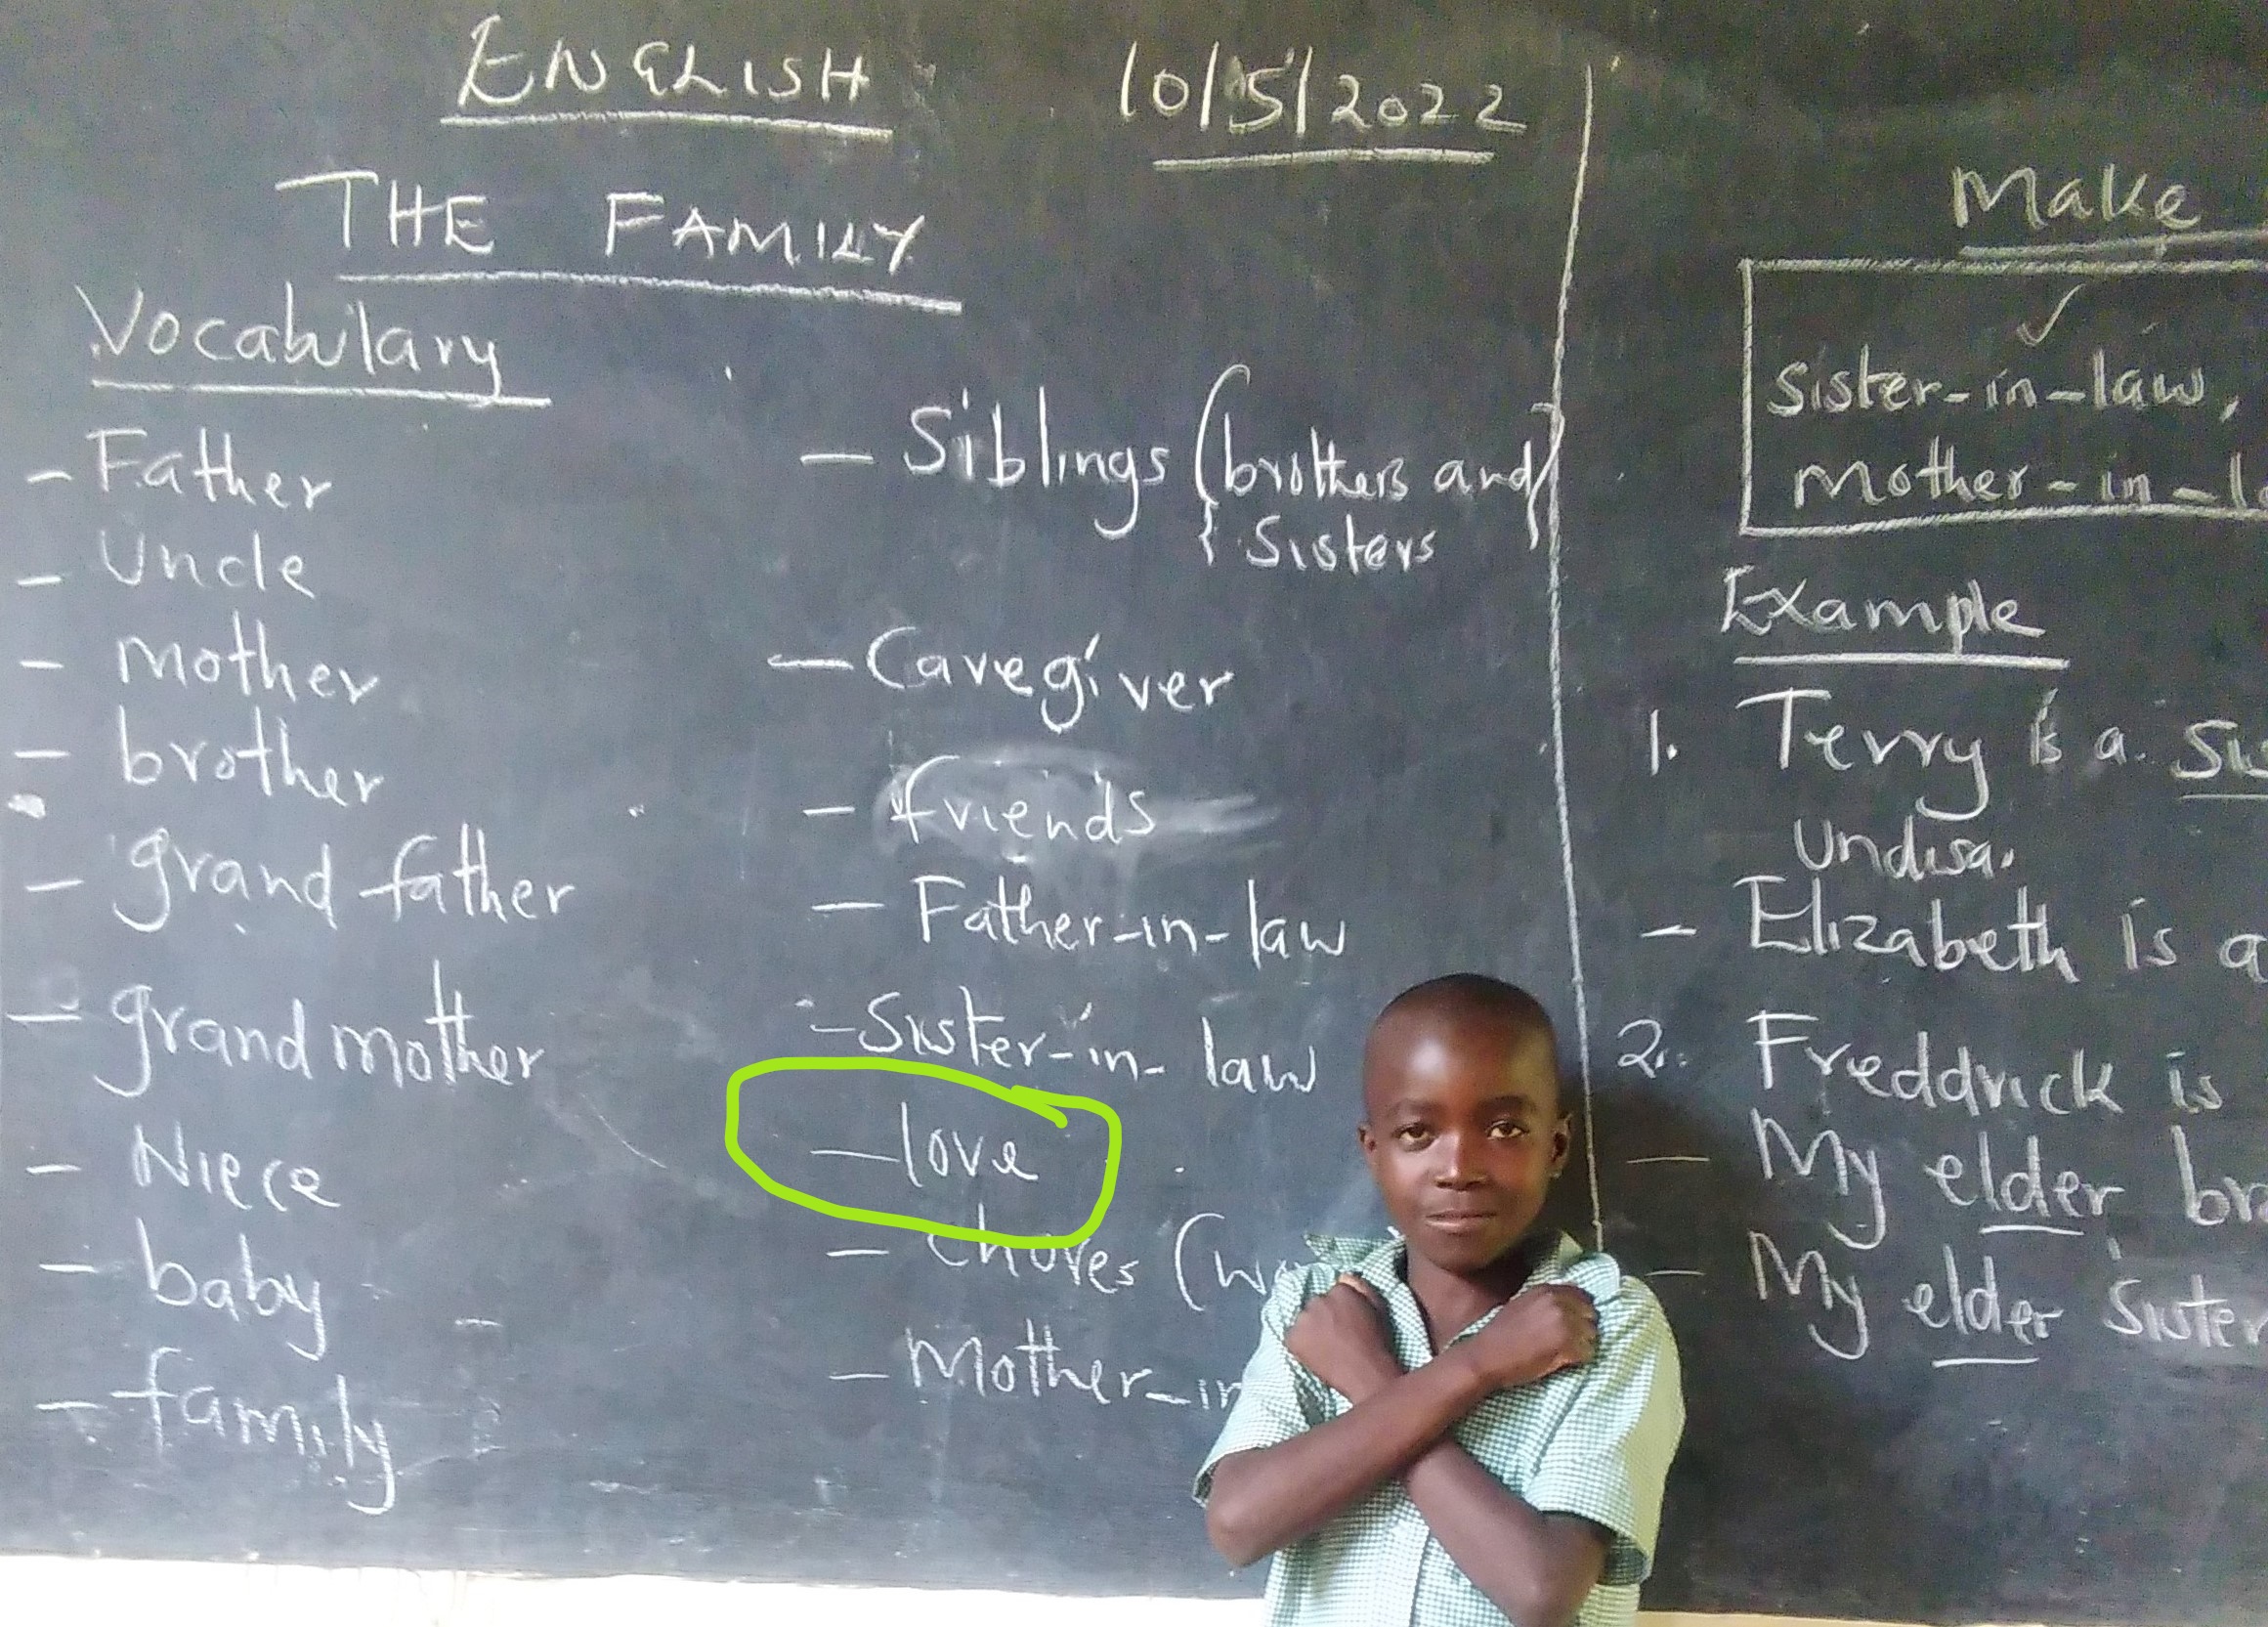 ENGLISH 10/5/2022
THE FAMILY
Vocabulary
- Father
- Uncle
- Mother
- brother
- grand father
- grand mother
- Niece
- baby
- family
- Siblings (brothers and
{ Sisters }
- Caregiver
- friends
- Father-in-law
- Sister-in-law
- love
- Chores (wo
- Mother-in
Make
✓
Sister-in-law,
Mother-in-la
Example
1. Terry is a
Undisa.
- Elizabeth is a
2. Freddrick is
- My elder bro
- My elder sister